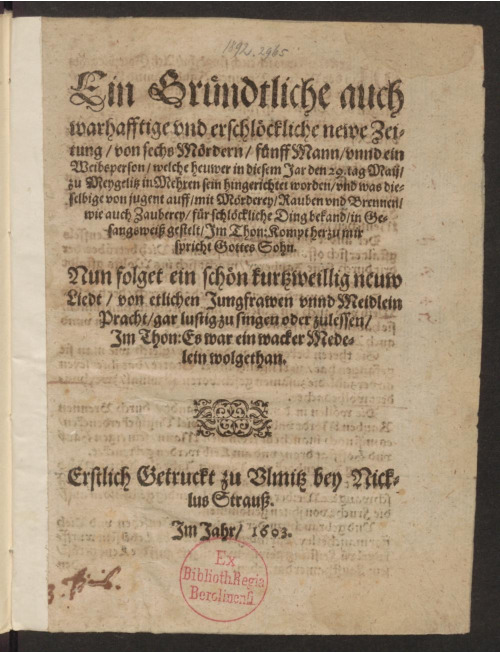 1892.2965
Ein Gründtliche auch
warhafftige vnd erschlöckliche newe Zei-
tung / von sechs Mördern / fünff Mann / vnnd ein
Weibsperson / welche heuwer in diesem Jar den 29. tag Maij /
zu Meygelitz in Mehren sein hingerichtet worden / vnd was die-
selbige von jugent auff / mit Mörderey / Rauben vnd Brennen /
wie auch Zauberey / für schlöckliche Ding bekand / in Ge-
sangsweiß gestelt / Im Thon: Kompt herzu mir
spricht Gottes Sohn.
Nun folget ein schön kurtzweillig neuw
Liedt / von etlichen Jungfrawen vnnd Meidlein
Pracht / gar lustig zu singen oder zulessen /
Im Thon: Es war ein wacker Mede-
lein wolgethan.
Erstlich Getruckt zu Vlmitz bey Nick-
lus Strauß.
Im Jahr / 1603.
Ex
Biblioth. Regia
Berolinensi